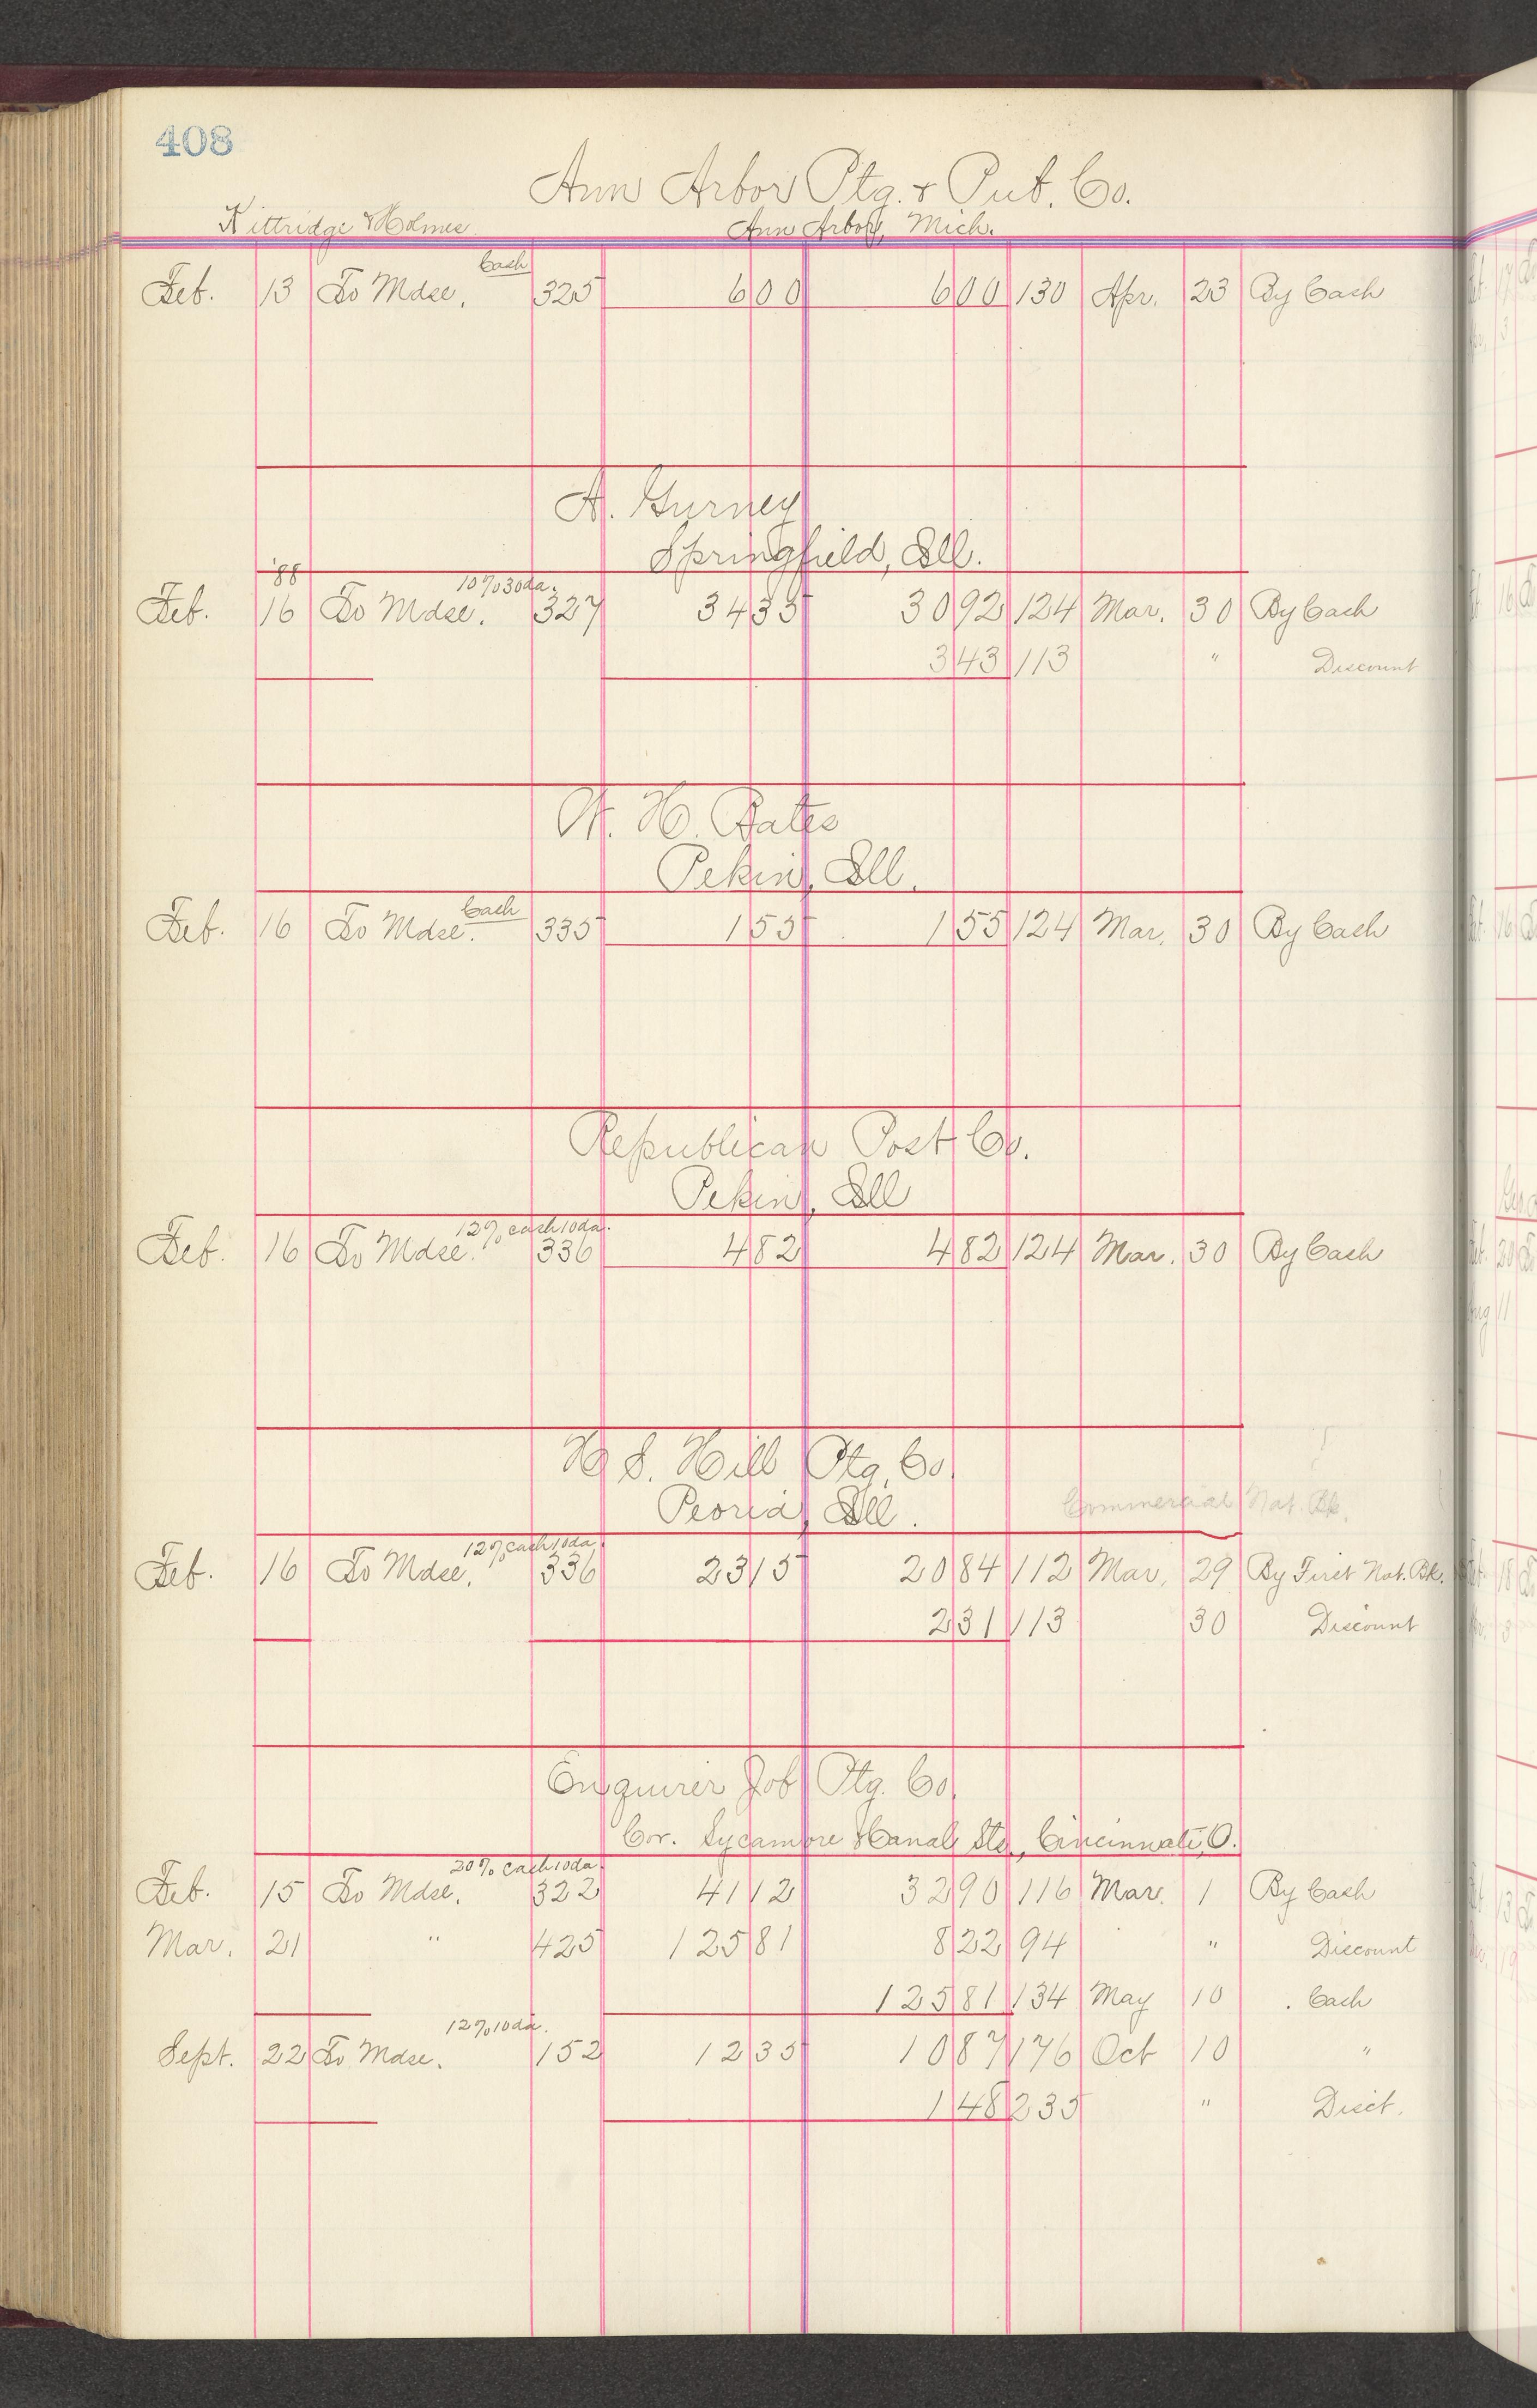 408
Ann Arbor Ptg. & Pub. Co.
Kittridge & Holmes Ann Arbor, Mich.
Cash
Feb. 13 To Mdse. 325 6 00 6 00 130 Apr. 23 By Cash
A. Gurney
Springfield, Ill.
'88 10% 30 da.
Feb. 16 To Mdse. 327 34 35 30 92 124 Mar. 30 By Cash
3 43 113 " Discount
W. H. Bates
Pekin, Ill.
Cash
Feb. 16 To Mdse. 335 1 55 1 55 124 Mar. 30 By Cash
Republican Post Co.
Pekin, Ill
12% cash 10 da.
Feb. 16 To Mdse. 336 4 82 4 82 124 Mar. 30 By Cash
H. S. Hill Ptg. Co.
Peoria, Ill. Commercial Nat. Bk.
12% cash 10 da.
Feb. 16 To Mdse. 336 23 15 20 84 112 Mar. 29 By First Nat. Bk.
2 31 113 30 Discount
Enquirer Job Ptg. Co.
Cor. Sycamore & Canal Sts., Cincinnati, O.
20% cash 10 da.
Feb. 15 To Mdse. 322 41 12 32 90 116 Mar. 1 By Cash
Mar. 21 " 425 125 81 8 22 94 " Discount
125 81 134 May 10 . Cash
12% 10 da.
Sept. 22 To Mdse. 152 12 35 10 87 176 Oct 10 "
1 48 235 " Disct.